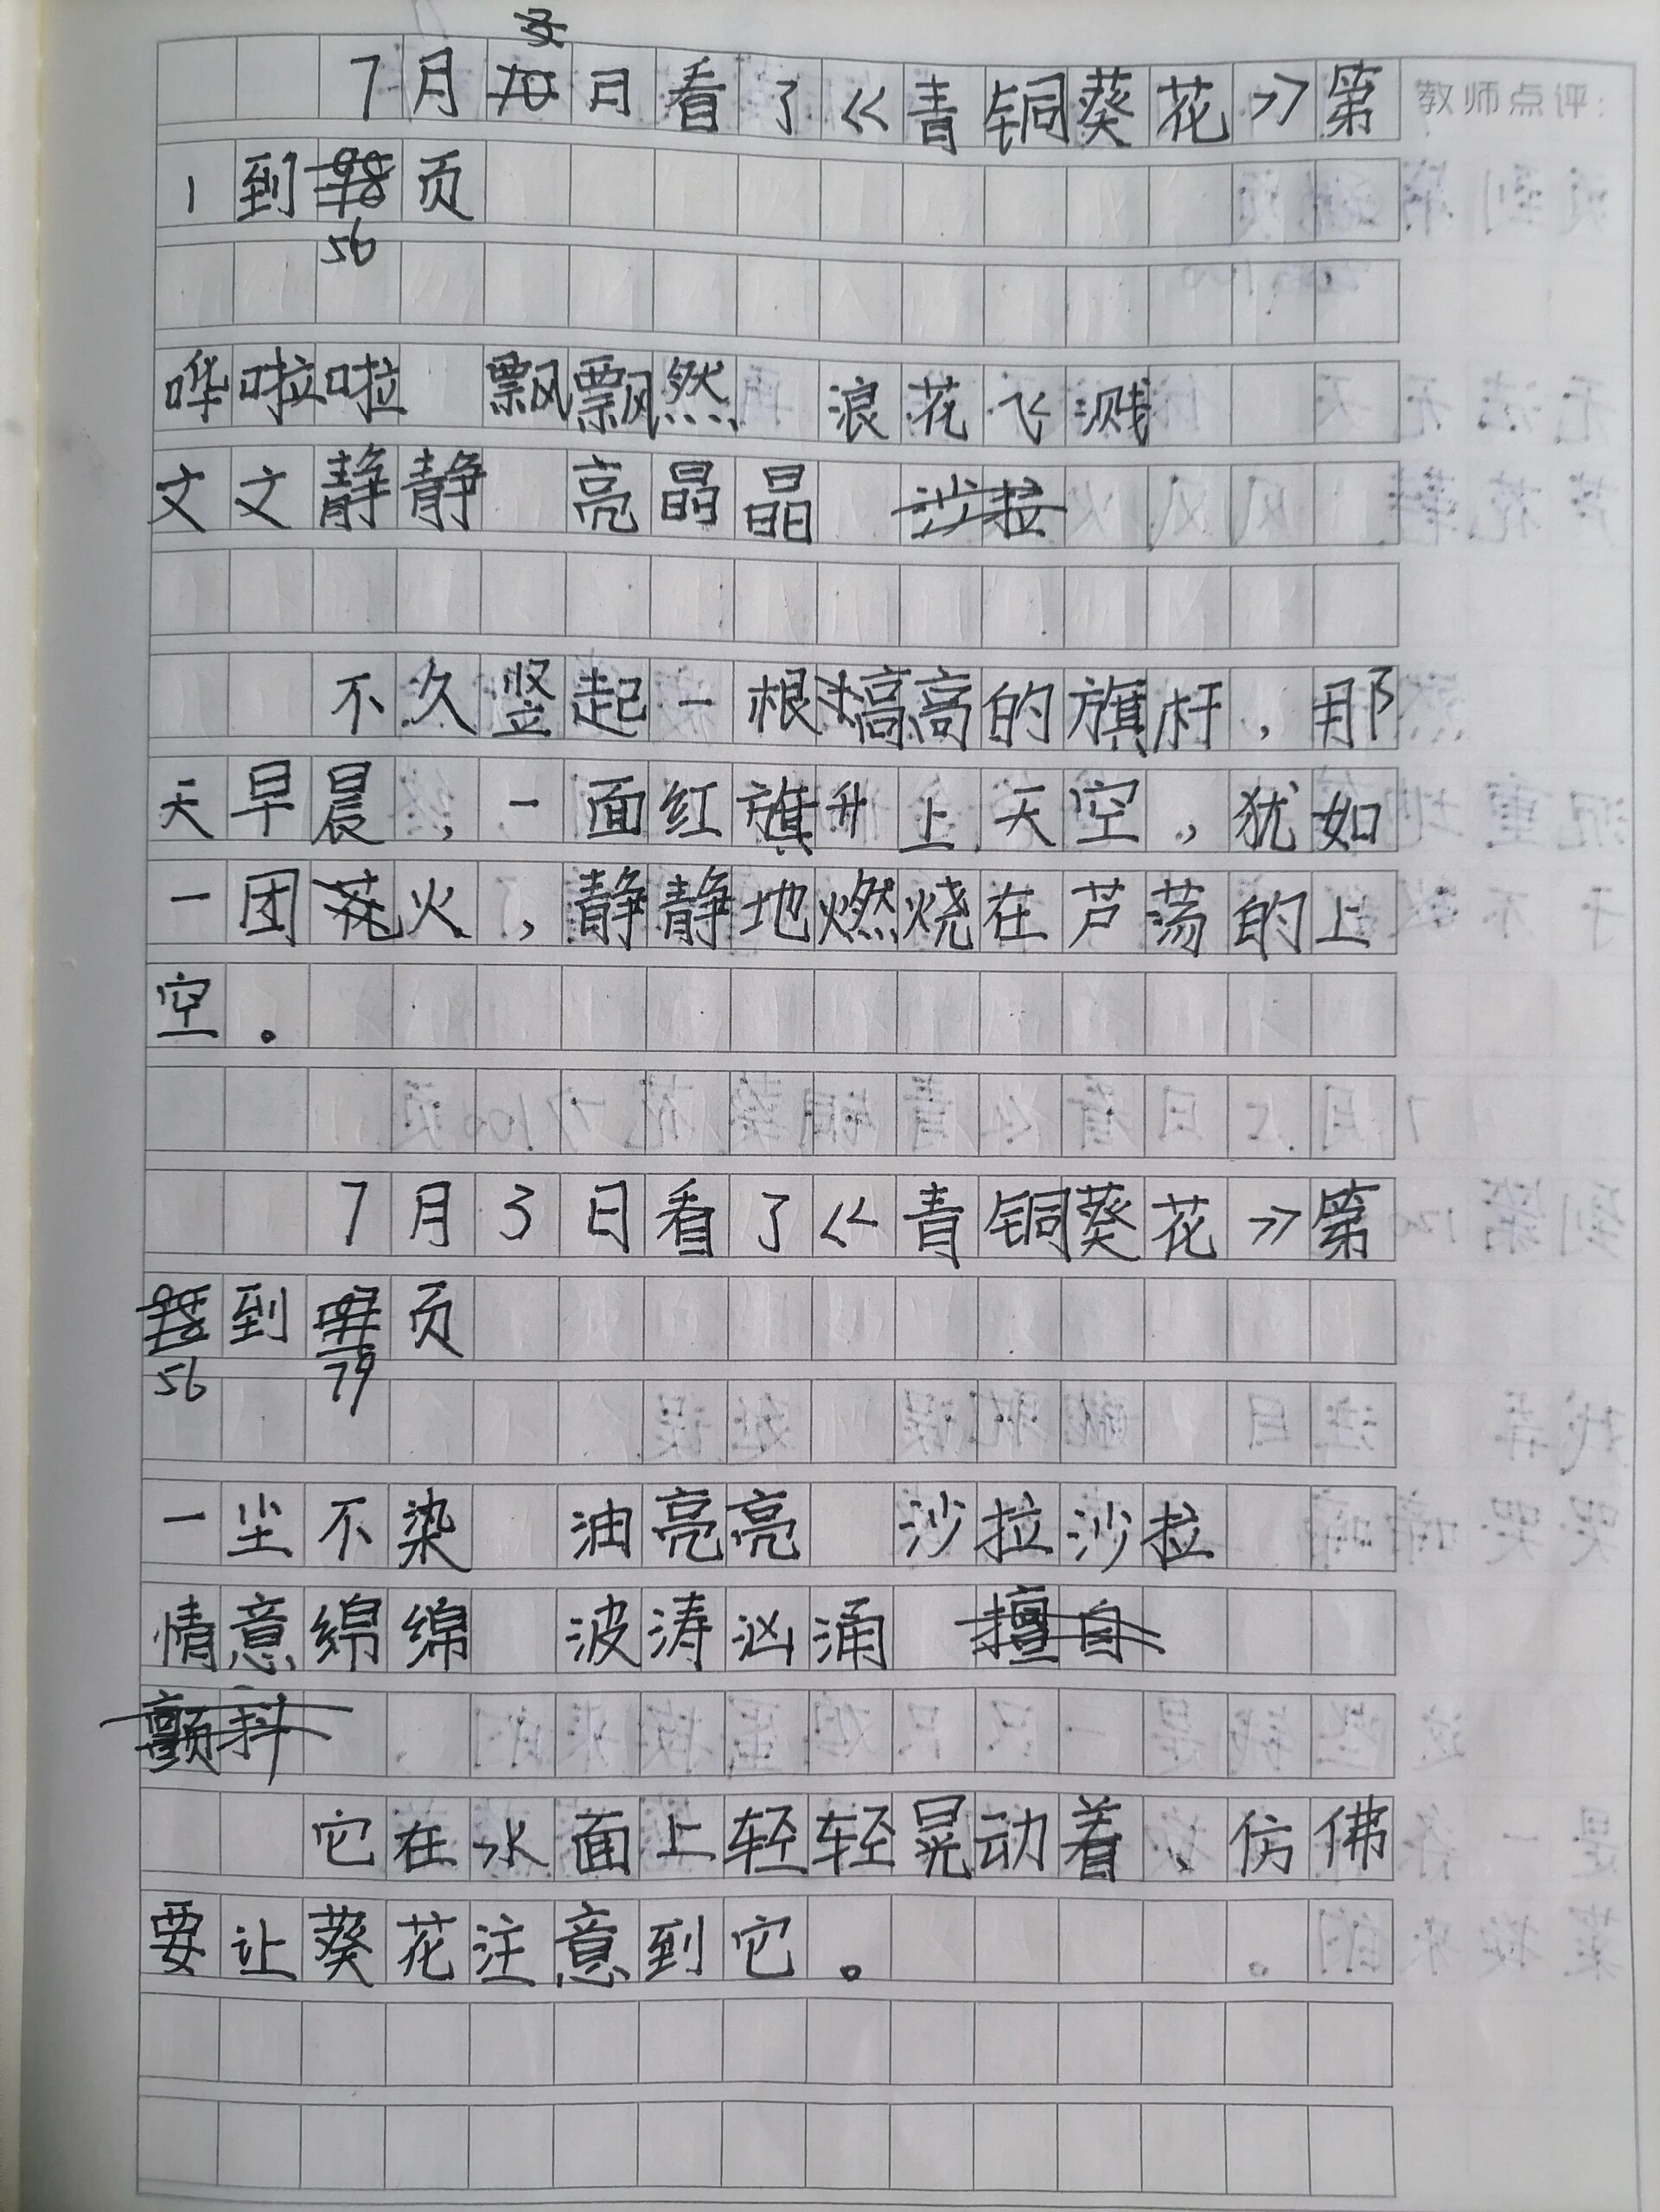 教师点评:
7月日看了《青铜葵花》第
1到56页
哗啦啦 飘飘然 浪花飞溅
文文静静 亮晶晶 沙拉
不久竖起一根高高的旗杆，那
天早晨，一面红旗升上天空，犹如
一团火，静静地燃烧在芦荡的上
空。
7月3日看了《青铜葵花》第
56到79页
一尘不染 油亮亮 沙拉沙拉
情意绵绵 波涛汹涌 擅自
颤抖
它在水面上轻轻晃动着、仿佛
要让葵花注意到它。